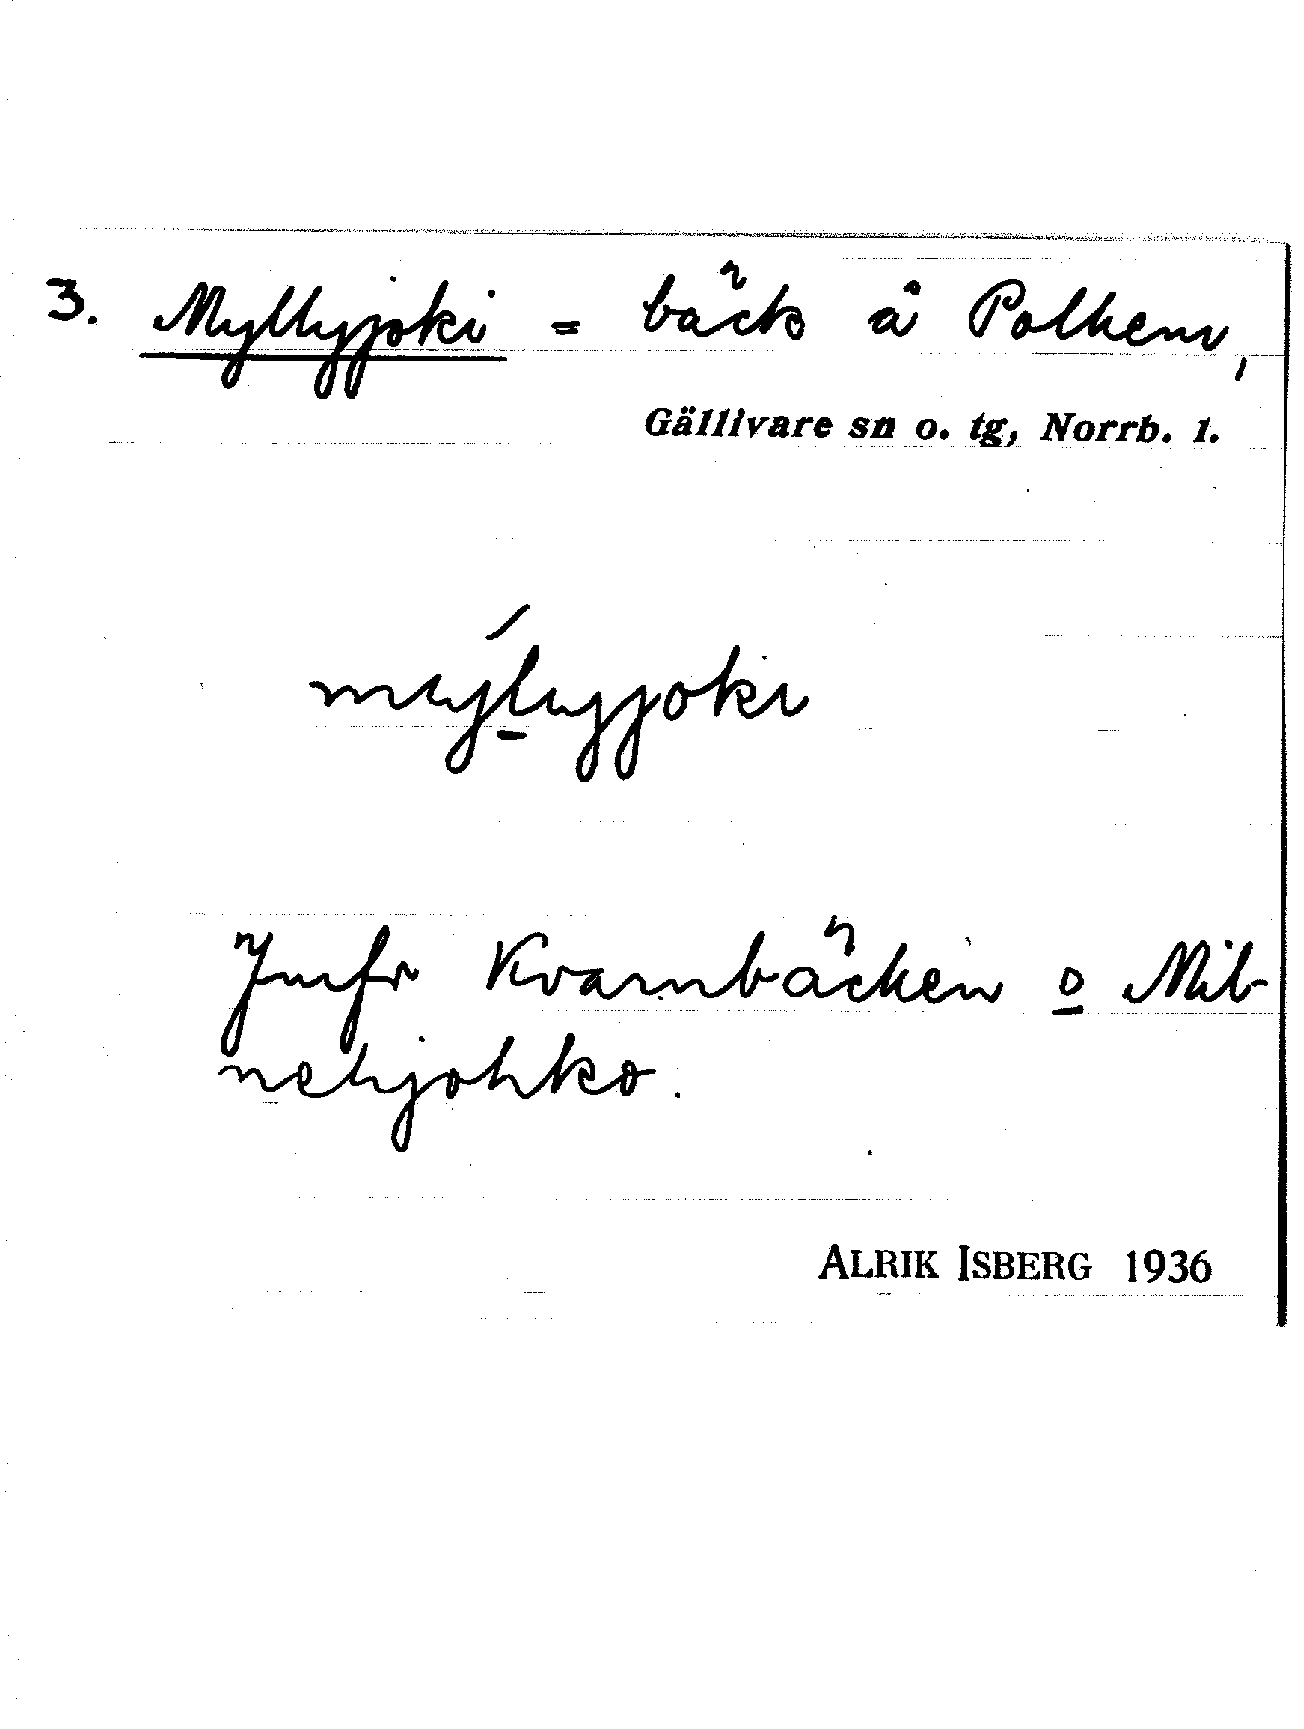 3. Myllyjoki = bäck å Polhem,
Gällivare sn o. tg, Norrb. l.
mýlyjoki
Jmfr Kvarnbäcken o Mil-
nehjohko.
ALRIK ISBERG 1936